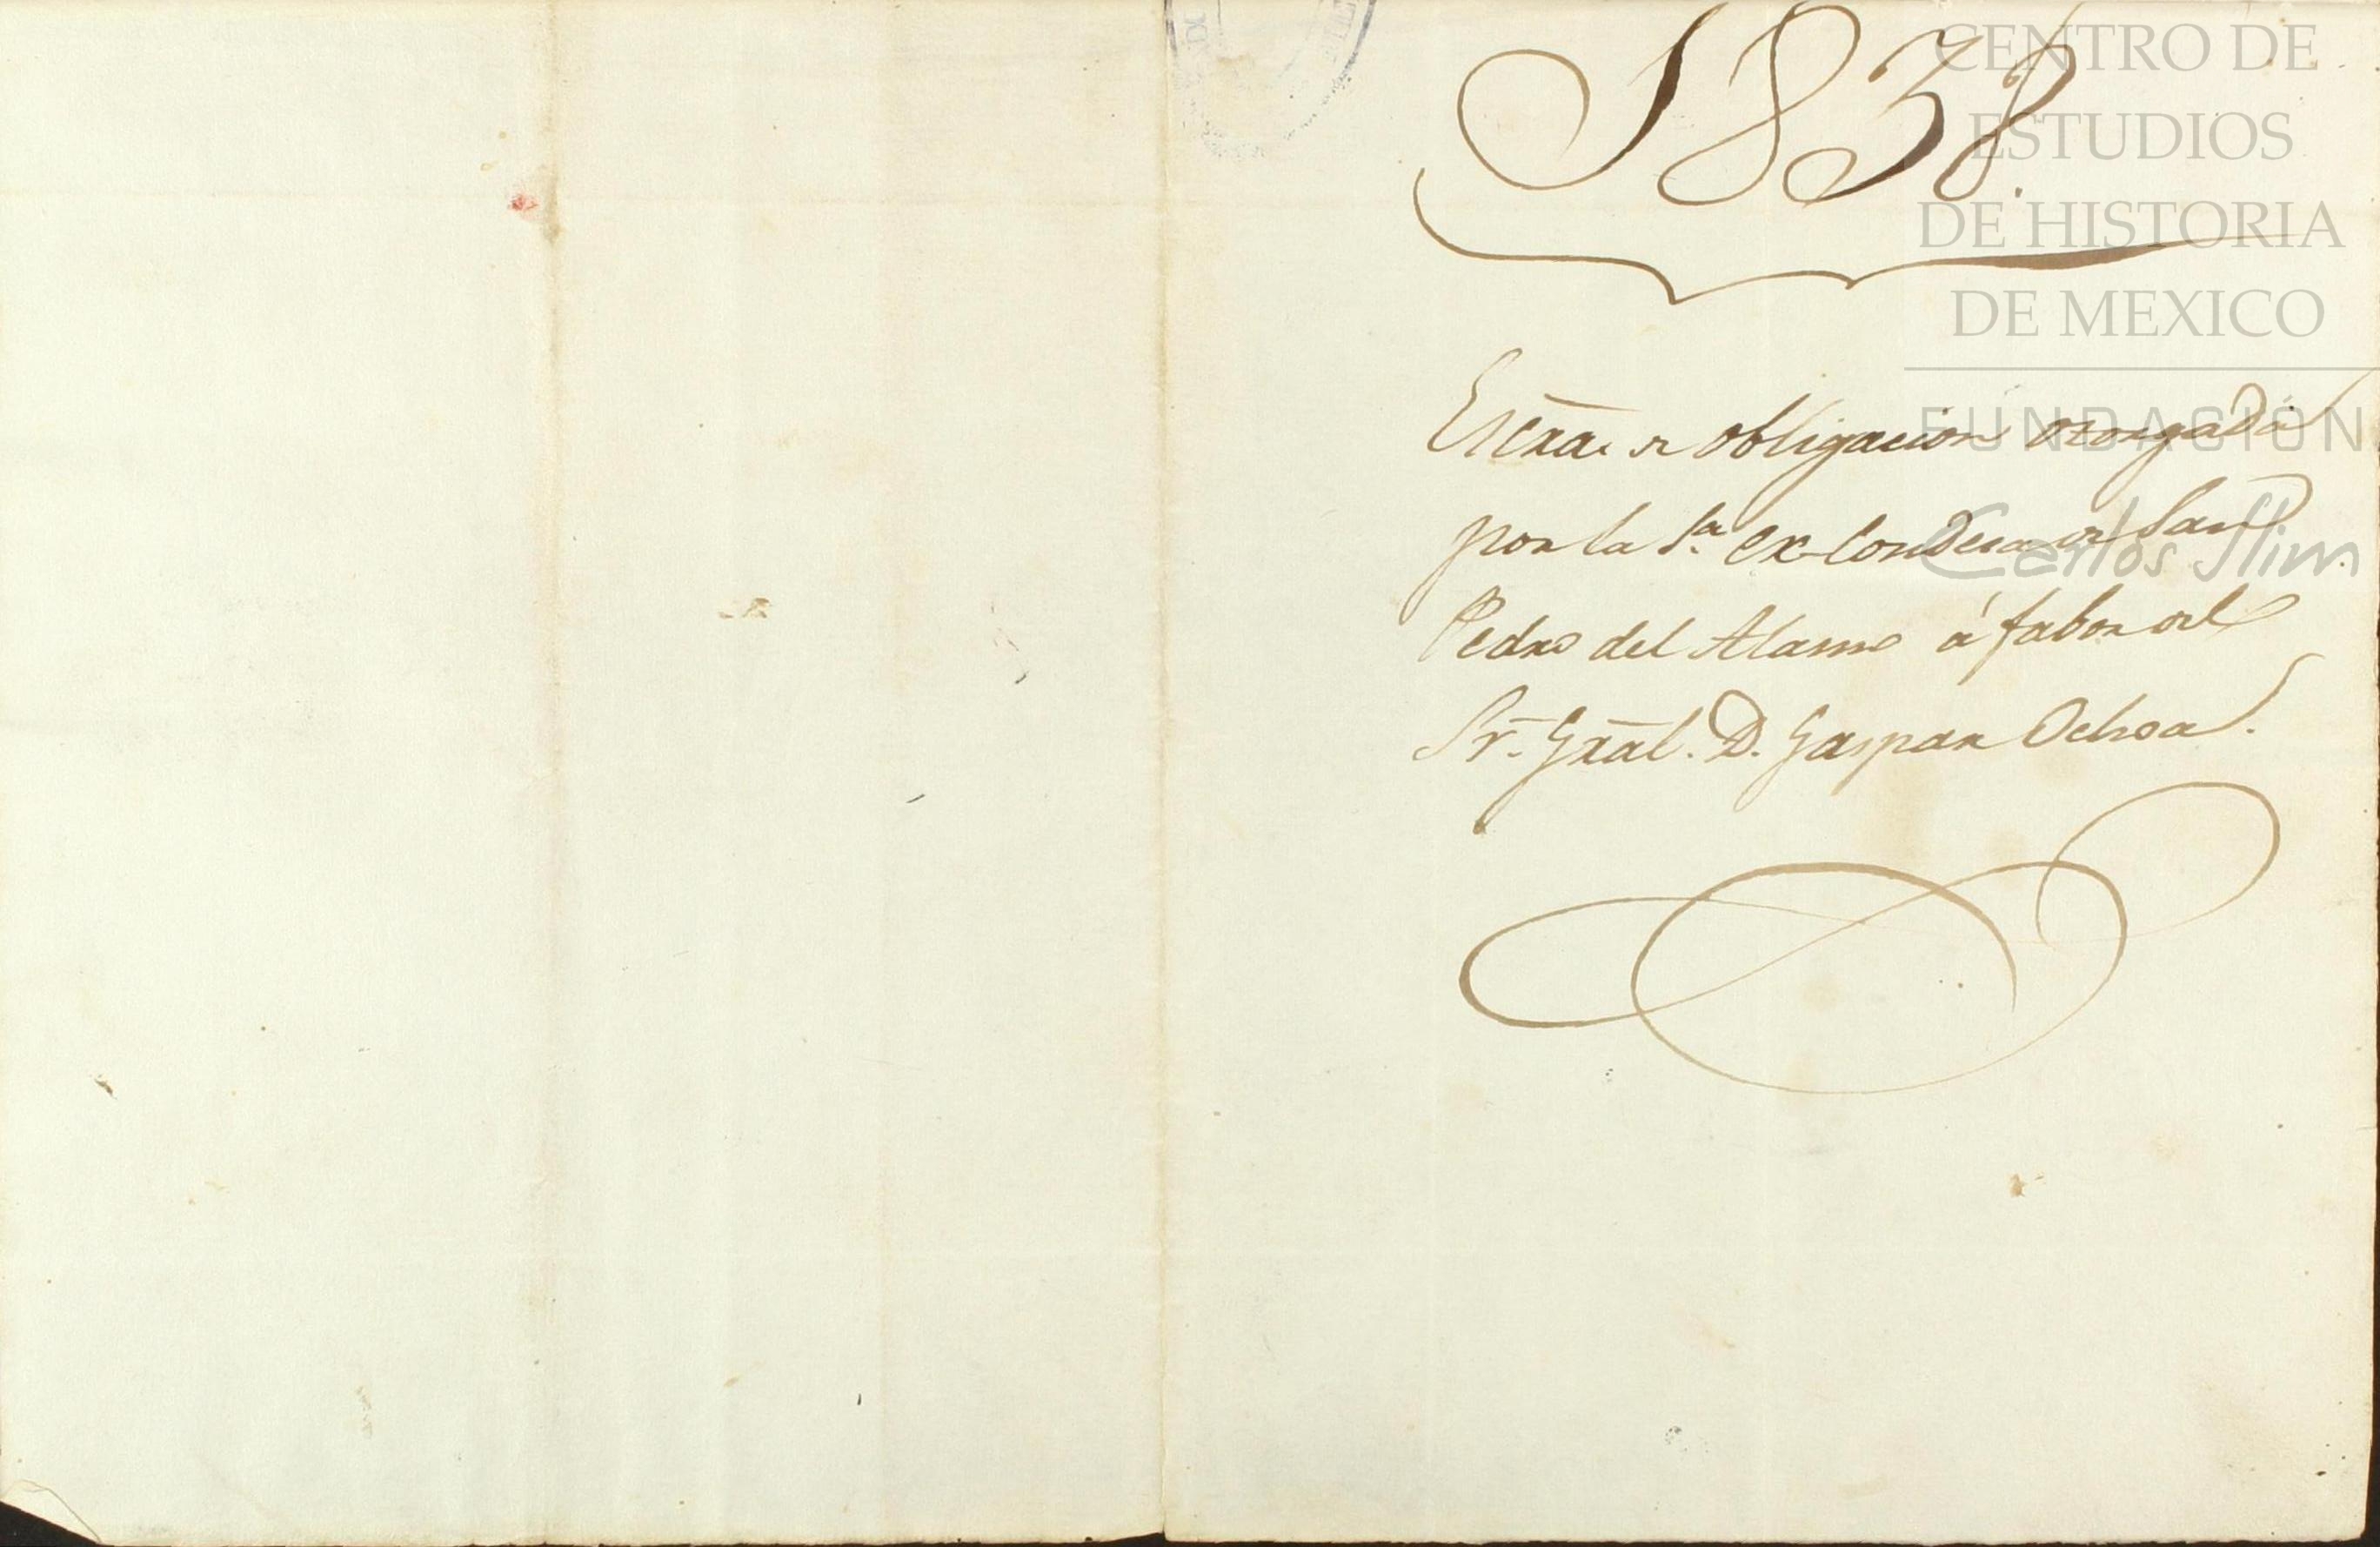 1838.
CENTRO DE
ESTUDIOS
DE HISTORIA
DE MEXICO
FUNDACIÓN
Carlos Slim
Escrã. de obligacion otorgada
por la Sª. ex-Condesa de San
Pedro del Alamo á fabor del
Sr. Grãl. D. Gaspar Ochoa.